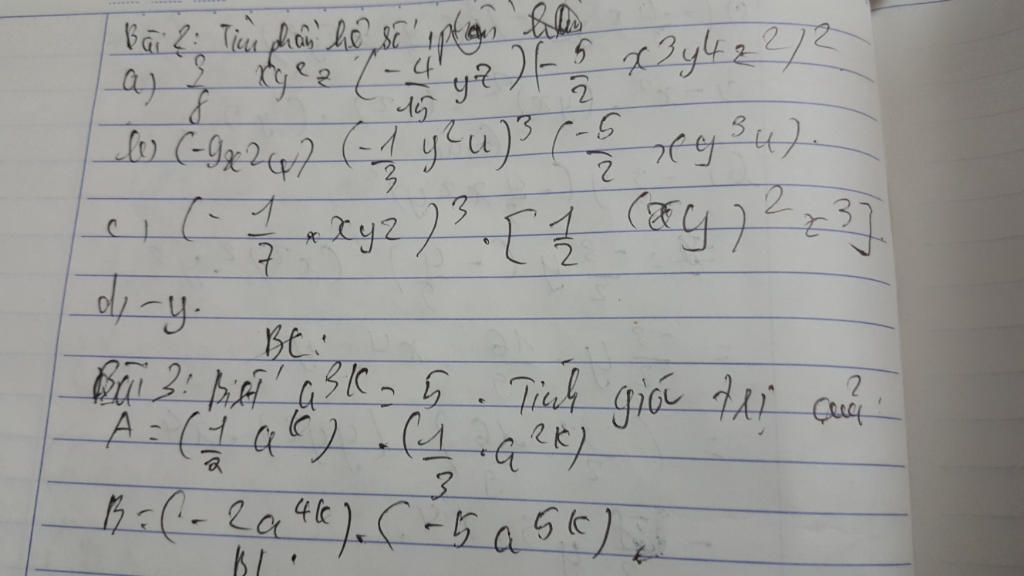 Bài 2: Tìm phần hệ số, phần biến
a) 3/8 xy²z (-4/15 yz)(-5/2 x3y4z2)2
b) (-9x2y) (-1/3 y²u)³ (-5/2 xy³u).
c, (-1/7 xyz)³ . [1/2 (xy)² z³]
d, -y.
BL:
Bài 3: Biết a³ᵏ = 5 . Tính giá trị của:
A = (1/2 aᵏ) . (1/3 . a²ᵏ)
B = (-2a⁴ᵏ) . (-5a⁵ᵏ).
BL: